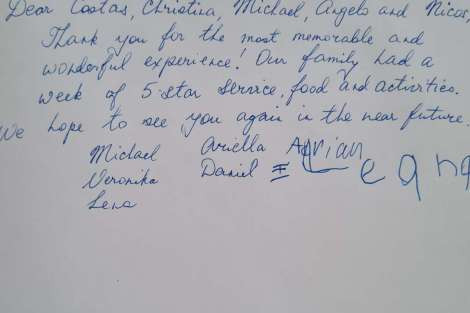 Dear Costas, Christina, Michael, Angelo and Nicos,
Thank you for the most memorable and
wonderful experience! Our family had a
week of 5 star service, food and activities.
We hope to see you again in the near future.
Michael Ariella Adrian
Veronika Daniel Leana
Lena